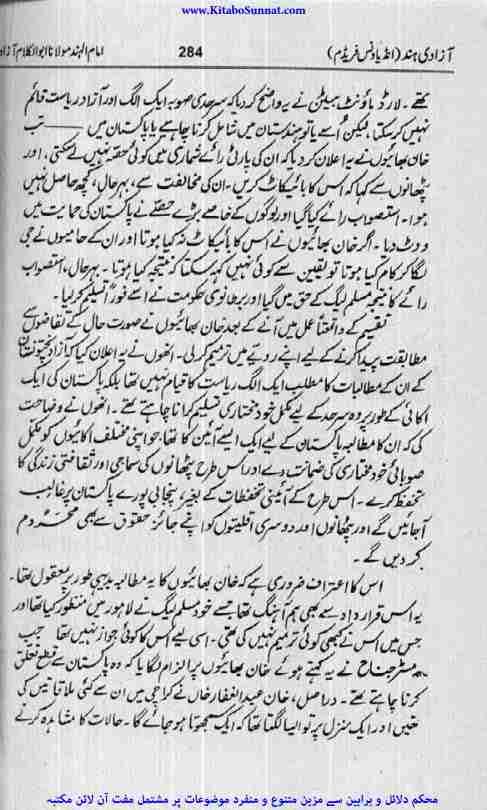 www.KitaboSunnat.com
آزادی ہند (انڈیا ونس فریڈم) 284 امام الہند مولانا ابوالکلام آزاد
تھے۔ لارڈ ماؤنٹ بیٹن نے یہ واضح کر دیا کہ سرحدی صوبہ ایک الگ اور آزاد ریاست قائم
نہیں کر سکتا، لیکن اُسے یا تو ہندستان میں شامل کرنا چاہیے یا پاکستان میں ——— تب
خان بھائیوں نے یہ اعلان کر دیا کہ ان کی پارٹی رائے شماری میں کوئی حصّہ نہیں لے سکتی، اور
پٹھانوں سے کہا کہ اس کا بائیکاٹ کریں۔ ان کی مخالفت سے، بہرحال، کچھ حاصل نہیں
ہوا۔ استصواب رائے کیا گیا اور لوگوں کے خاصے بڑے حصّے نے پاکستان کی حمایت میں
ووٹ دیا۔ اگر خان بھائیوں نے اس کا بائیکاٹ نہ کیا ہوتا اور ان کے حامیوں نے جی
لگا کر کام کیا ہوتا تو یقین سے کوئی نہیں کہہ سکتا کہ نتیجہ کیا ہوتا۔ بہرحال، استصواب
رائے کا نتیجہ مسلم لیگ کے حق میں گیا اور برطانوی حکومت نے اسے فوراً تسلیم کر لیا۔
تقسیم کے واقعتاً عمل میں آنے کے بعد خان بھائیوں نے صورت حال کے تقاضوں سے
مطابقت پیدا کرنے کے لیے اپنے رویے میں ترمیم کر لی۔ انھوں نے یہ اعلان کیا کہ آزاد پختونستان
کے ان کے مطالبات کا مطلب ایک الگ ریاست کا قیام نہیں تھا بلکہ پاکستان کی ایک
اکائی کے طور پر وہ سرحد کے لیے مکمل خود مختاری تسلیم کرانا چاہتے تھے۔ انھوں نے وضاحت
کی کہ ان کا مطالبہ پاکستان کے لیے ایک ایسے آئین کا تھا، جو اپنی مختلف اکائیوں کو مکمل
صوبائی خود مختاری کی ضمانت دے اور اس طرح پٹھانوں کی سماجی اور ثقافتی زندگی کا
تحفظ کرے۔ اس طرح کے آئینی تحفظات کے بغیر، پنجابی پورے پاکستان پر غالب
آ جائیں گے اور پٹھانوں اور دوسری اقلیتوں کو اپنے جائز حقوق سے بھی محروم
کر دیں گے۔
اس کا اعتراف ضروری ہے کہ خان بھائیوں کا یہ مطالبہ بدیہی طور پر معقول تھا۔
یہ اس قرارداد سے بھی ہم آہنگ تھا جسے خود مسلم لیگ نے لاہور میں منظور کیا تھا اور
جس میں اس نے کبھی کوئی ترمیم نہیں کی تھی۔ اسی لیے اس کا کوئی جواز نہیں تھا جب
مسٹر جناح نے یہ کہتے ہوئے خان بھائیوں پر الزام لگایا کہ وہ پاکستان سے قطع تعلق
کرنا چاہتے تھے۔ دراصل، خان عبدالغفار خاں نے کراچی میں ان سے کئی ملاقاتیں کی
تھیں اور ایک منزل پر تو ایسا لگتا تھا کہ ایک سمجھوتا ہو جائے گا۔ حالات کا مشاہدہ کرنے
محکم دلائل و براہین سے مزین متنوع و منفرد موضوعات پر مشتمل مفت آن لائن مکتبہ